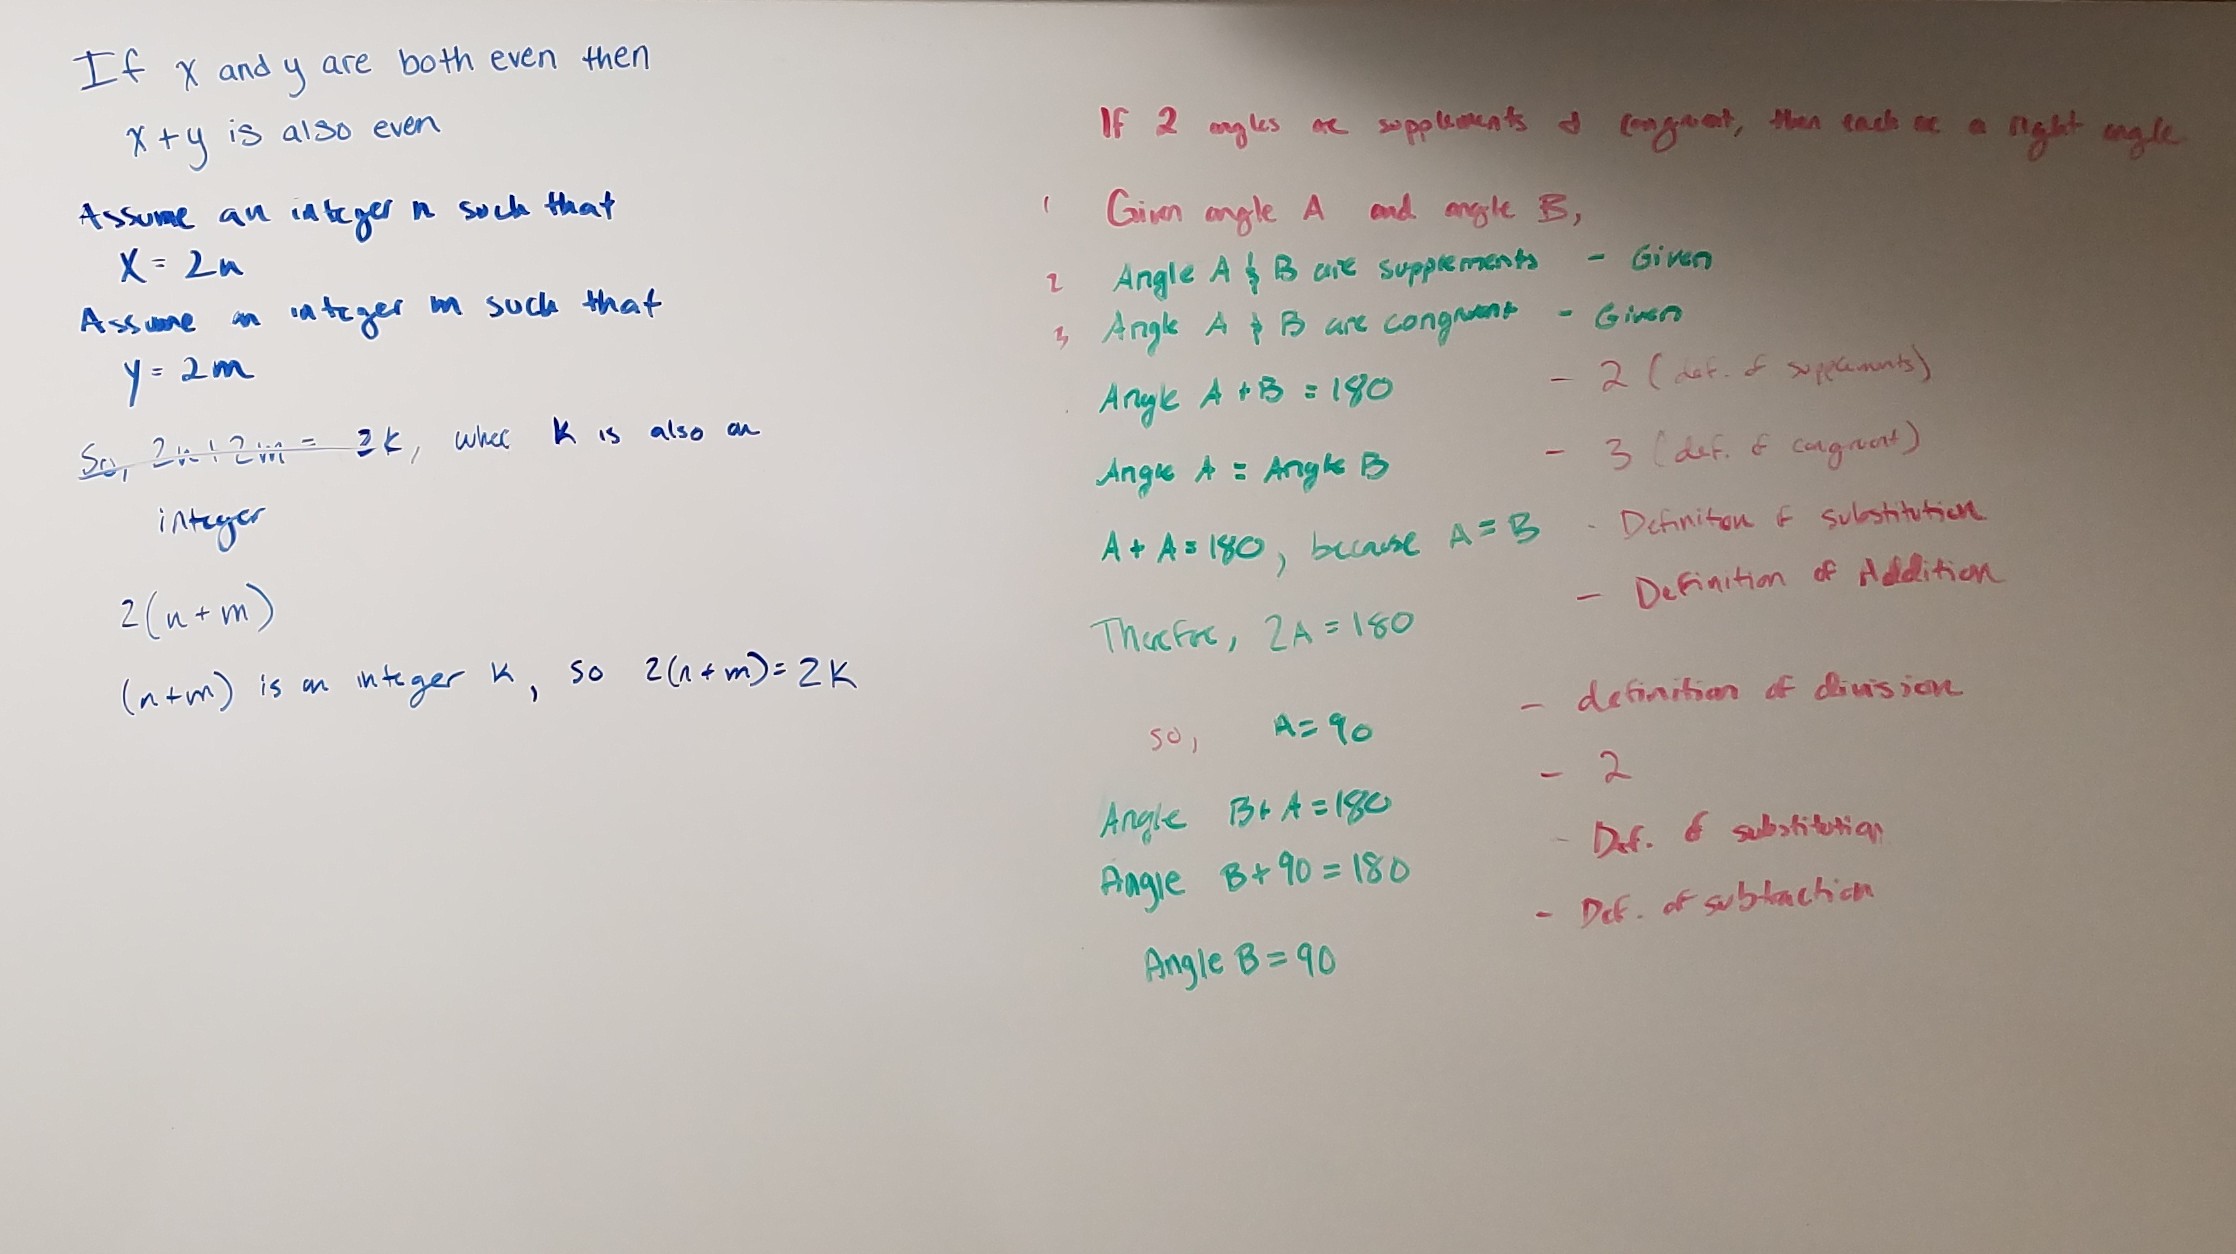 If x and y are both even then
x+y is also even
Assume an integer n such that
x = 2n
Assume an integer m such that
y = 2m
So, 2n+2m = 2k, where k is also an
integer
2(n+m)
(n+m) is an integer k, so 2(n+m)=2k
If 2 angles are supplements & congruent, then each are a right angle
1 Given angle A and angle B,
2 Angle A & B are supplements - Given
3 Angle A & B are congruent - Given
Angle A + B = 180 - 2 (def. of supplements)
Angle A = Angle B - 3 (def. of congruent)
A + A = 180, because A = B - Definition of substitution
Therefore, 2A = 180 - Definition of Addition
so, A = 90 - definition of division
Angle B + A = 180 - 2
Angle B + 90 = 180 - Def. of substitution
Angle B = 90 - Def. of subtraction